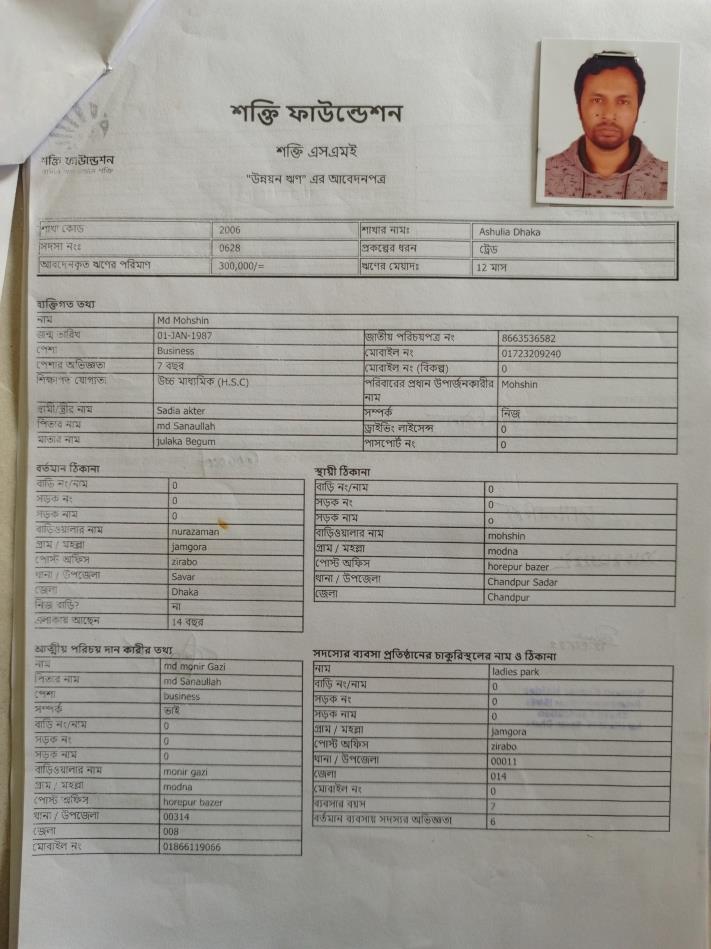 শক্তি ফাউন্ডেশন
শক্তি ফাউন্ডেশন
শক্তি এসএমই
"উন্নয়ন ঋণ" এর আবেদনপত্র
শাখা কোড 2006 শাখার নামঃ Ashulia Dhaka
সদস্য নংঃ 0628 প্রকল্পের ধরন ট্রেড
আবদেনকৃত ঋণের পরিমাণ 300,000/= ঋণের মেয়াদঃ 12 মাস
ব্যক্তিগত তথ্য
নাম Md Mohshin
জন্ম তারিখ 01-JAN-1987 জাতীয় পরিচয়পত্র নং 8663536582
পেশা Business মোবাইল নং 01723209240
পেশার অভিজ্ঞতা 7 বছর মোবাইল নং (বিকল্প) 0
শিক্ষাগত যোগ্যতা উচ্চ মাধ্যমিক (H.S.C) পরিবারের প্রধান উপার্জনকারীর Mohshin
নাম
স্বামী/স্ত্রীর নাম Sadia akter সম্পর্ক নিজ
পিতার নাম md Sanaullah ড্রাইভিং লাইসেন্স 0
মাতার নাম julaka Begum পাসপোর্ট নং 0
বর্তমান ঠিকানা
বাড়ি নং/নাম 0
সড়ক নং 0
সড়ক নাম 0
বাড়িওয়ালার নাম nurazaman
গ্রাম / মহল্লা jamgora
পোস্ট অফিস zirabo
থানা / উপজেলা Savar
জেলা Dhaka
নিজ বাড়ি? না
এলাকায় আছেন 14 বছর
স্থায়ী ঠিকানা
বাড়ি নং/নাম 0
সড়ক নং 0
সড়ক নাম o
বাড়িওয়ালার নাম mohshin
গ্রাম / মহল্লা modna
পোস্ট অফিস horepur bazer
থানা / উপজেলা Chandpur Sadar
জেলা Chandpur
আত্মীয় পরিচয় দান কারীর তথ্য
নাম md monir Gazi
পিতার নাম md Sanaullah
পেশা business
সম্পর্ক ভাই
বাড়ি নং/নাম 0
সড়ক নং 0
সড়ক নাম 0
বাড়িওয়ালার নাম monir gazi
গ্রাম / মহল্লা modna
পোস্ট অফিস horepur bazer
থানা / উপজেলা 00314
জেলা 008
মোবাইল নং 01866119066
সদস্যের ব্যবসা প্রতিষ্ঠানের চাকুরিস্থলের নাম ও ঠিকানা
নাম ladies park
বাড়ি নং/নাম 0
সড়ক নং 0
সড়ক নাম 0
গ্রাম / মহল্লা jamgora
পোস্ট অফিস zirabo
থানা / উপজেলা 00011
জেলা 014
মোবাইল নং 0
ব্যবসার বয়স 7
বর্তমান ব্যবসায় সদস্যের অভিজ্ঞতা 6